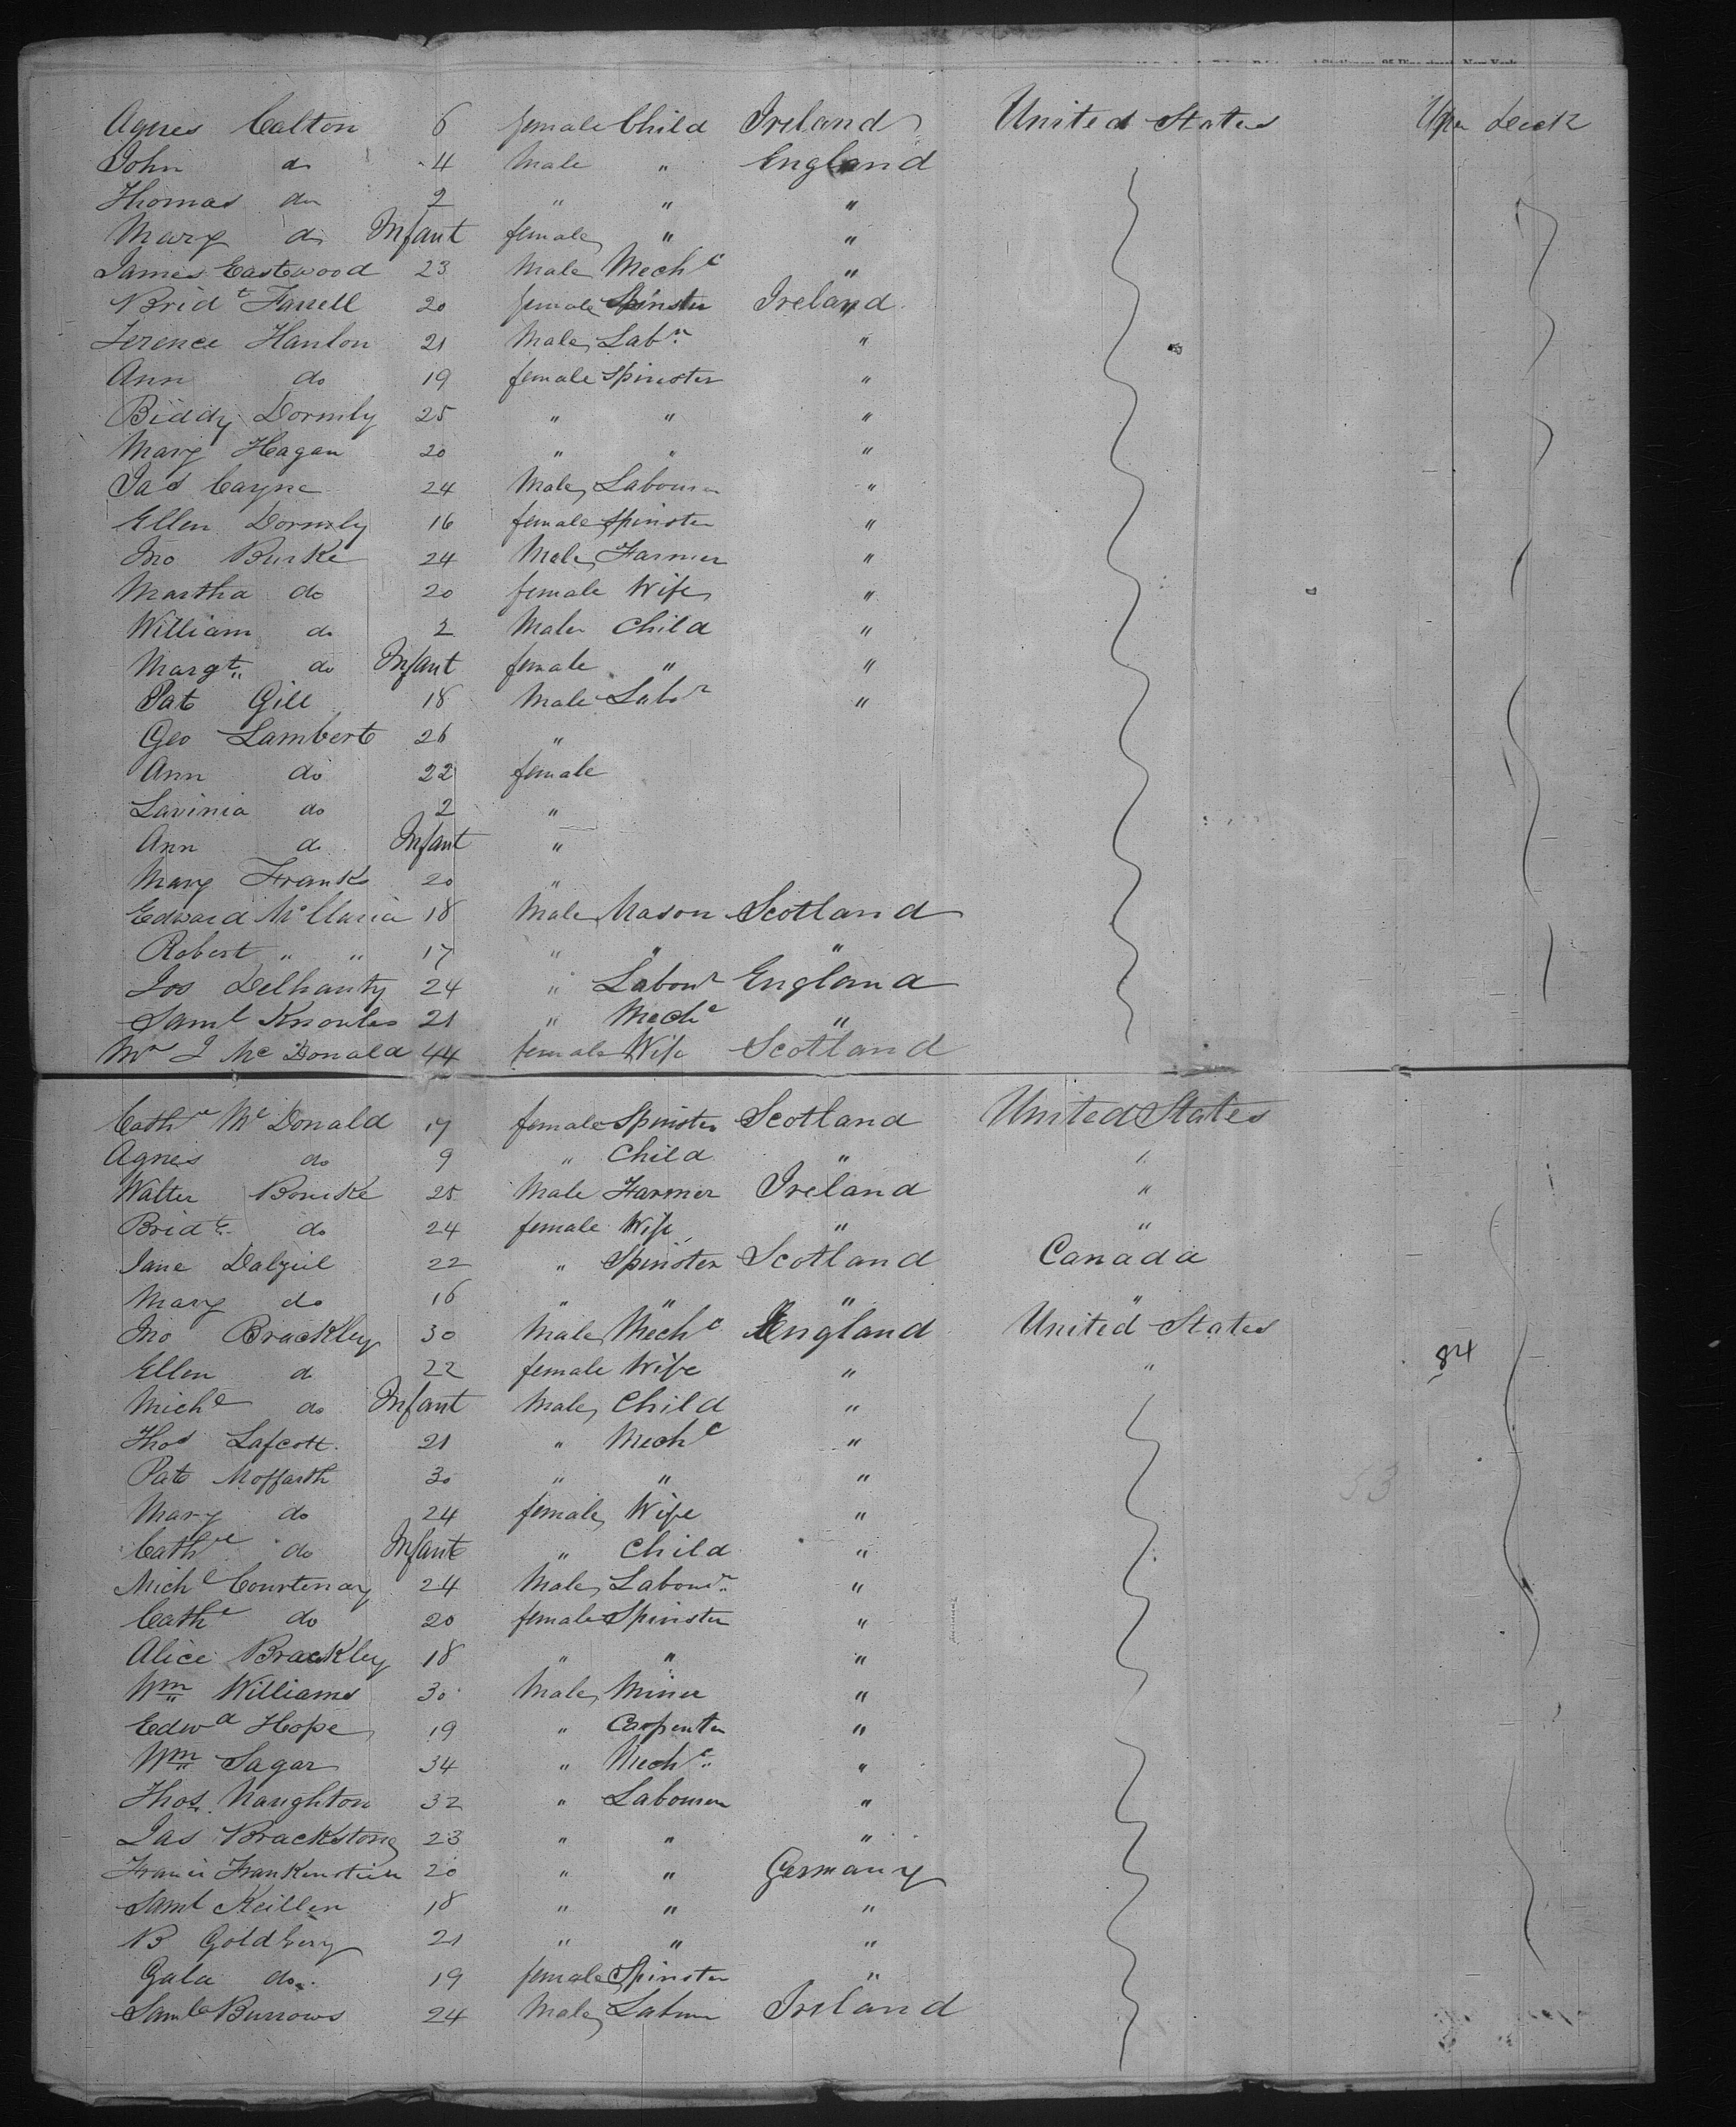 Agnes Calton 6 female Child Ireland United States Upr Deck
John do 4 Male " England
Thomas do 2 " " "
Mary do Infant female " "
James Eastwood 23 Male Mechc "
Bridt Farrell 20 female Spinster Ireland
Terence Hanlon 21 Male Labr "
Ann do 19 female Spinster "
Biddy Dormly 25 " " "
Mary Hagan 20 " " "
Jas Cayne 24 Male Labourer "
Ellen Dormly 16 female Spinster "
Jno Burke 24 Male Farmer "
Martha do 20 female Wife "
William do 2 Male Child "
Margt do Infant female " "
Pat Gill 18 Male Labr "
Geo Lambert 26 "
Ann do 22 female
Lavinia do 2 "
Ann do Infant "
Mary Franks 20 "
Edward 18 Male Mason Scotland
Robert " " 17 " " "
Jos Delhanty 24 " Labour England
Saml Knowles 21 " Mechc "
Mrs J McDonald 44 female Wife Scotland
Cathne McDonald 17 female Spinster Scotland United States
Agnes do 9 " Child " "
Walter Bourke 25 Male Farmer Ireland "
Bridt do 24 female Wife " "
Jane Dalziel 22 " Spinster Scotland Canada
Mary do 16 " " " "
Jno Brackley 30 Male Mechc England United States
Ellen do 22 female Wife " " 84
Michl do Infant Male Child "
Thos Lafcott 21 " Mechc "
Pat Moffarth 30 " " " 53
Mary do 24 female Wife "
Cathne do Infant " Child "
Michl Courtenay 24 Male Labour "
Cathe do 20 female Spinster "
Alice Brackley 18 " " "
Wm Williams 30 Male Miner "
Edwd Hope 19 " Carpenter "
Wm Sagar 34 " Mechc "
Thos Naughton 32 " Labourer "
Jas Brackstone 23 " " "
Francis Frankenstein 20 " " Germany
Saml Keillen 18 " " "
B Goldberg 21 " " "
Gala do 19 female Spinster "
Saml Burrows 24 Male Labour Ireland